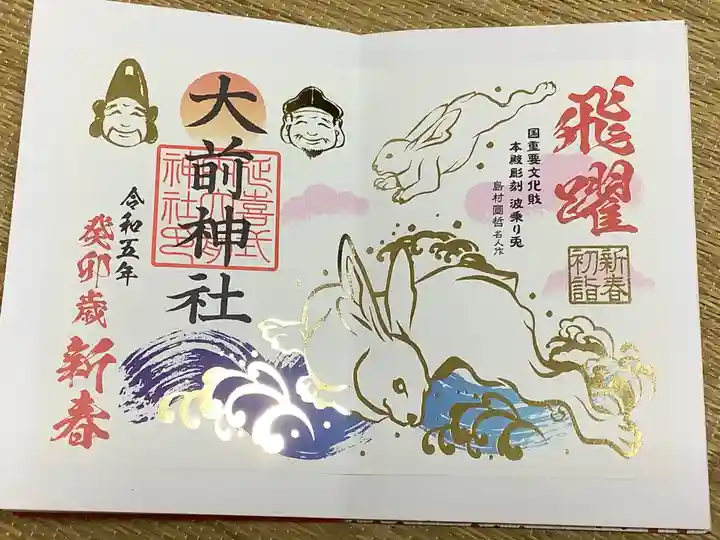 飛躍
新春
初詣
国重要文化財
本殿彫刻 波乗り兎
島村圓哲名人作
大前神社
令和五年
癸卯歳 新春